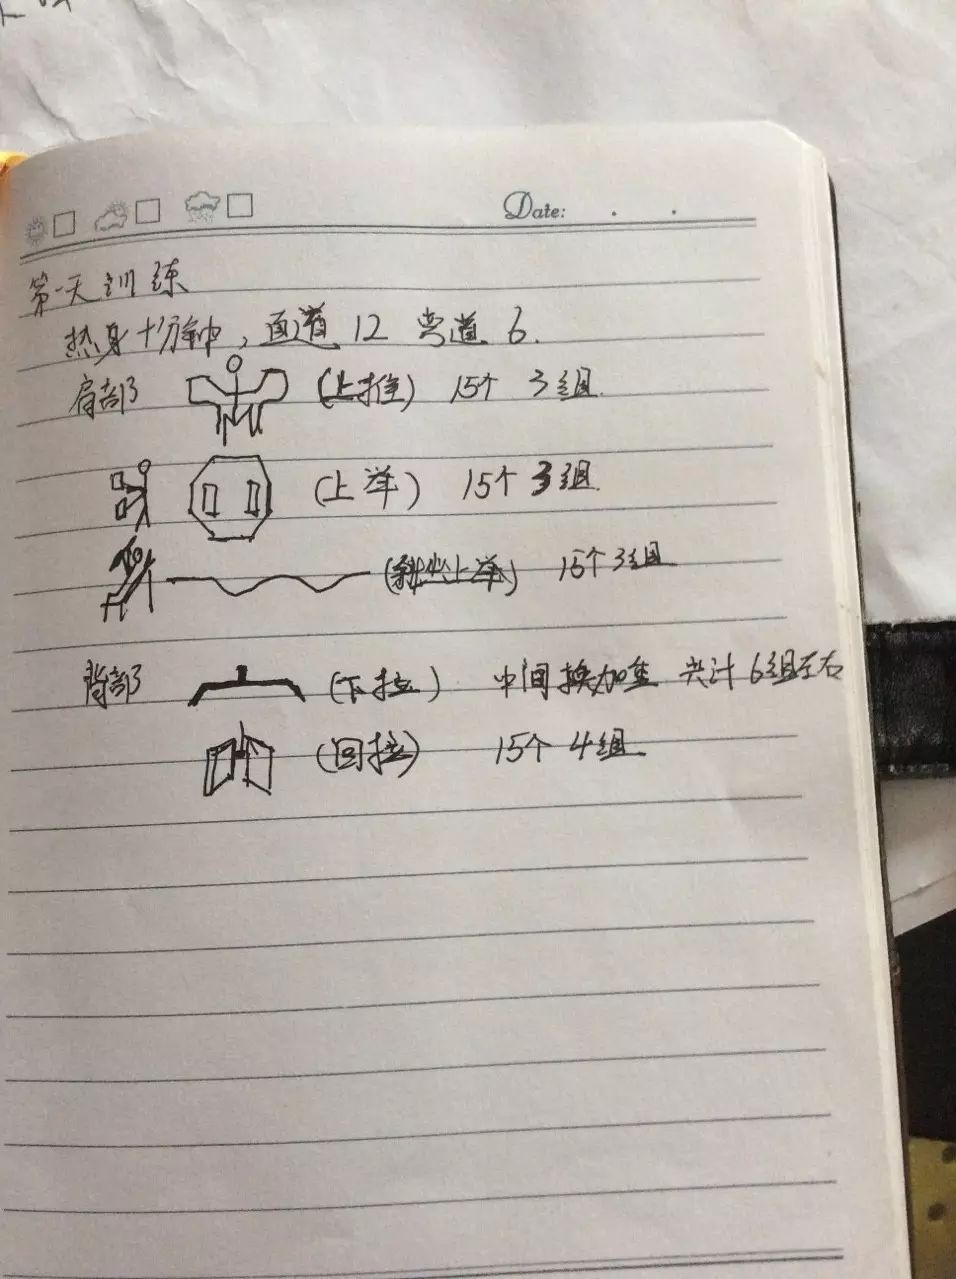 Date: . .
第一天训练
热身十分钟,直道 12 弯道 6.
肩部 (上推) 15个 3组.
(上举) 15个 3组.
(斜坐上举) 15个3组
背部 (下拉) 中间换加重 共计6组左右
(回拉) 15个 4组